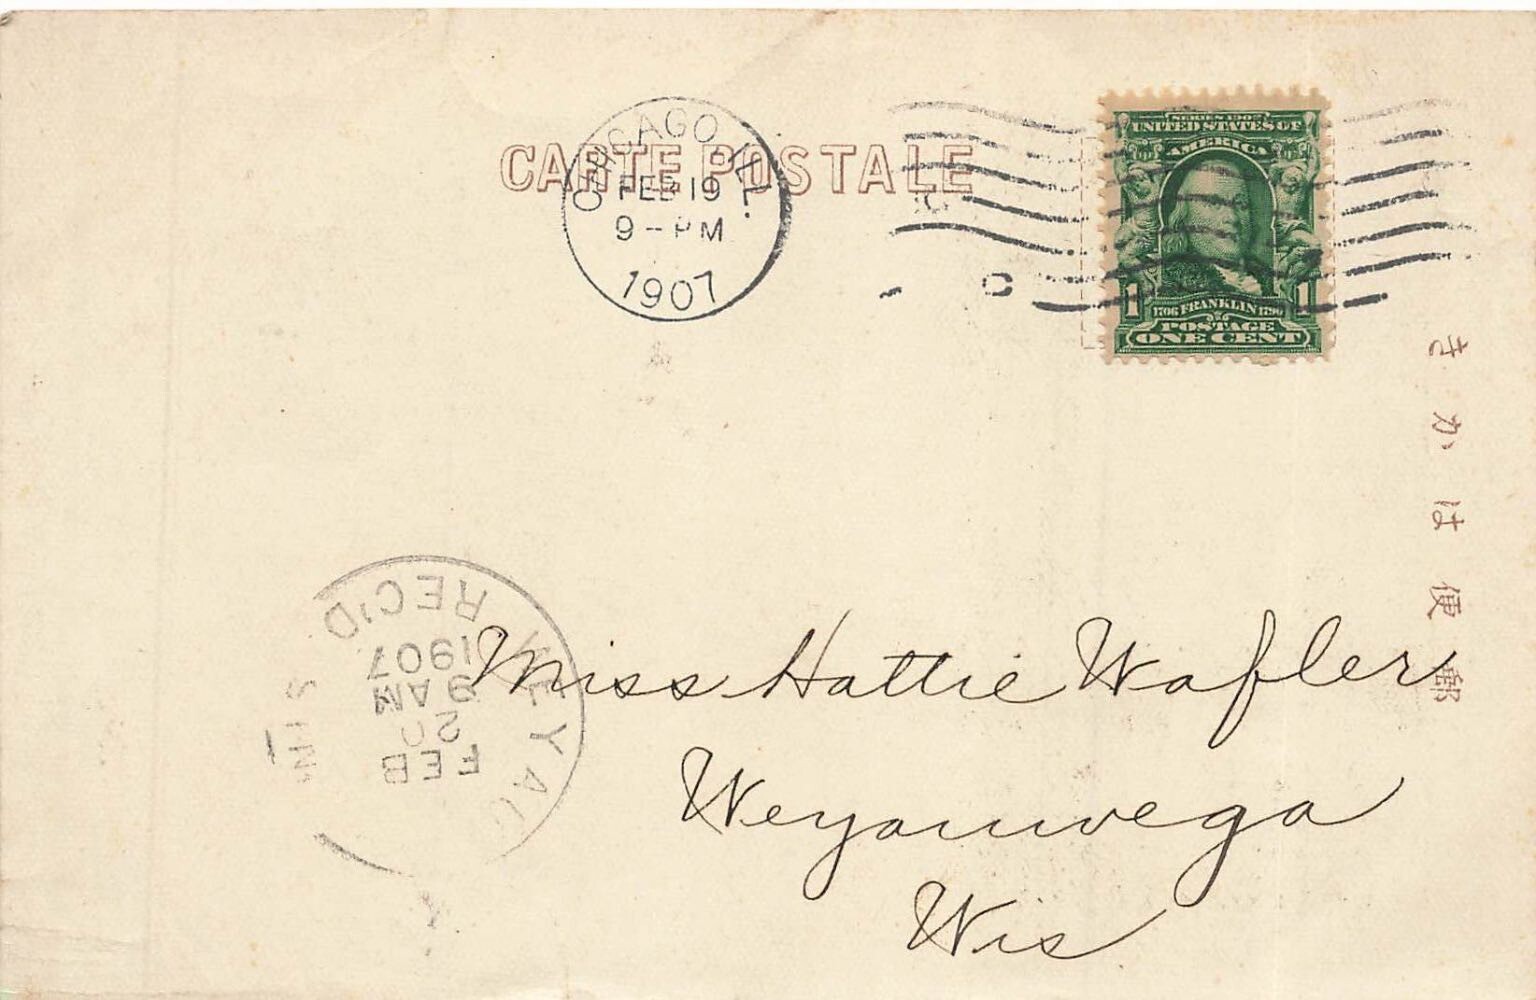 CARTE POSTALE
CHICAGO, ILL.
FEB 19
9 - PM
1907
SERIES 1902
UNITED STATES OF
AMERICA
1 1706 FRANKLIN 1790 1
POSTAGE
ONE CENT
きかは便郵
REC'D
1907
9 AM
20
FEB
Miss Hattie Wafler
Weyauwega
Wis